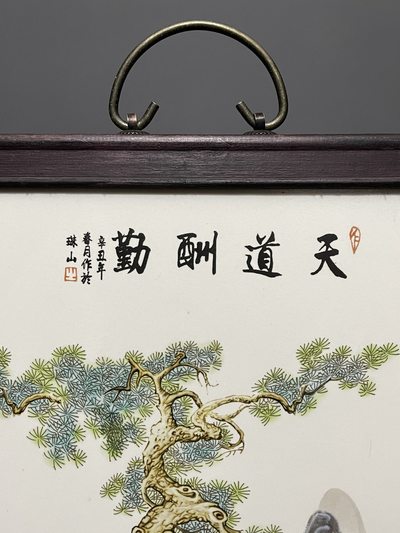 天道酬勤
辛丑年
春月作於
珠山